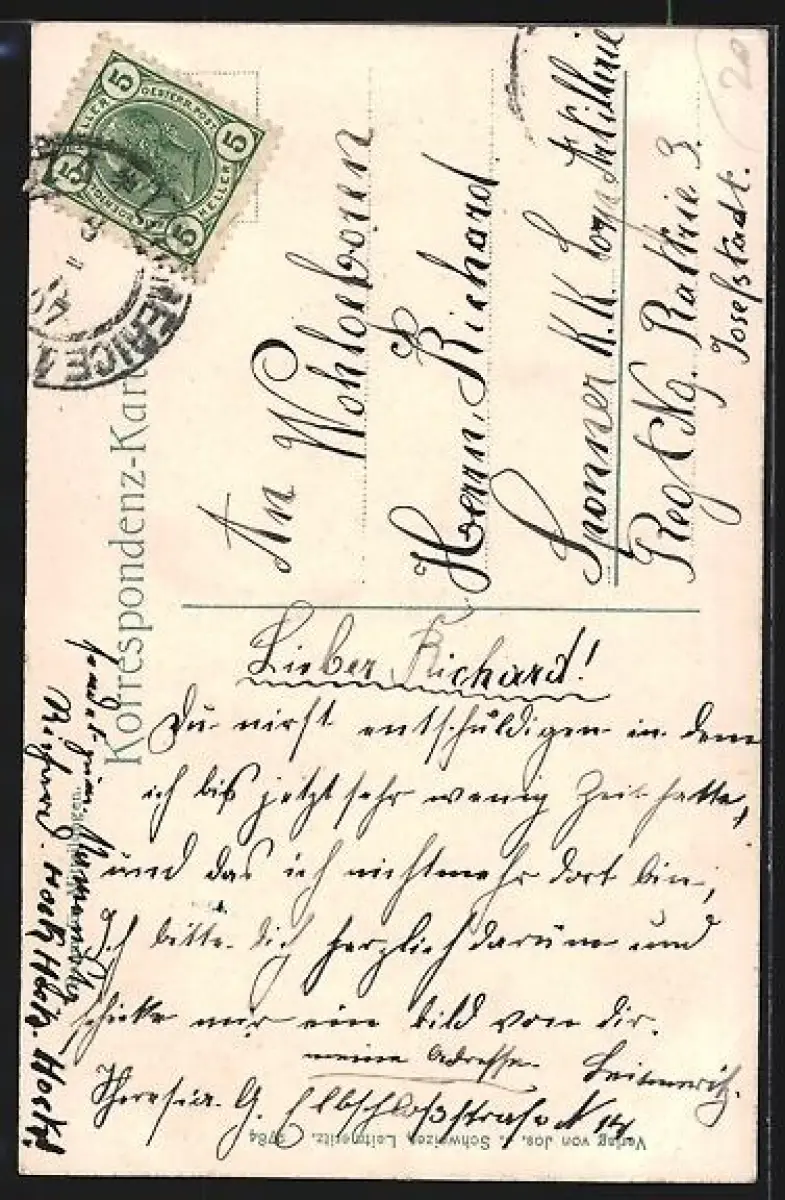 5 5
5 5
OESTERR. POST
HELLER HELLER
Korrespondenz-Kart
An Wohlgeboren
Herrn Richard
Sponner K.K. Artillerie
Reg. Ng. Battrie 3.
Josefstadt.
20
Lieber Richard!
Du wirst entschuldigen in dem
ich bis jetzt sehr wenig Zeit hatte,
und das ich nichtmehr dort bin,
Ich bitte dich herzlich darum und
schicke mir ein bild von dir.
meine Adresse. Leitmeritz.
Theresia. G. Elbschloßstraße N 14
Verlag von Jos. Schweizer, Leitmeritz. 3784